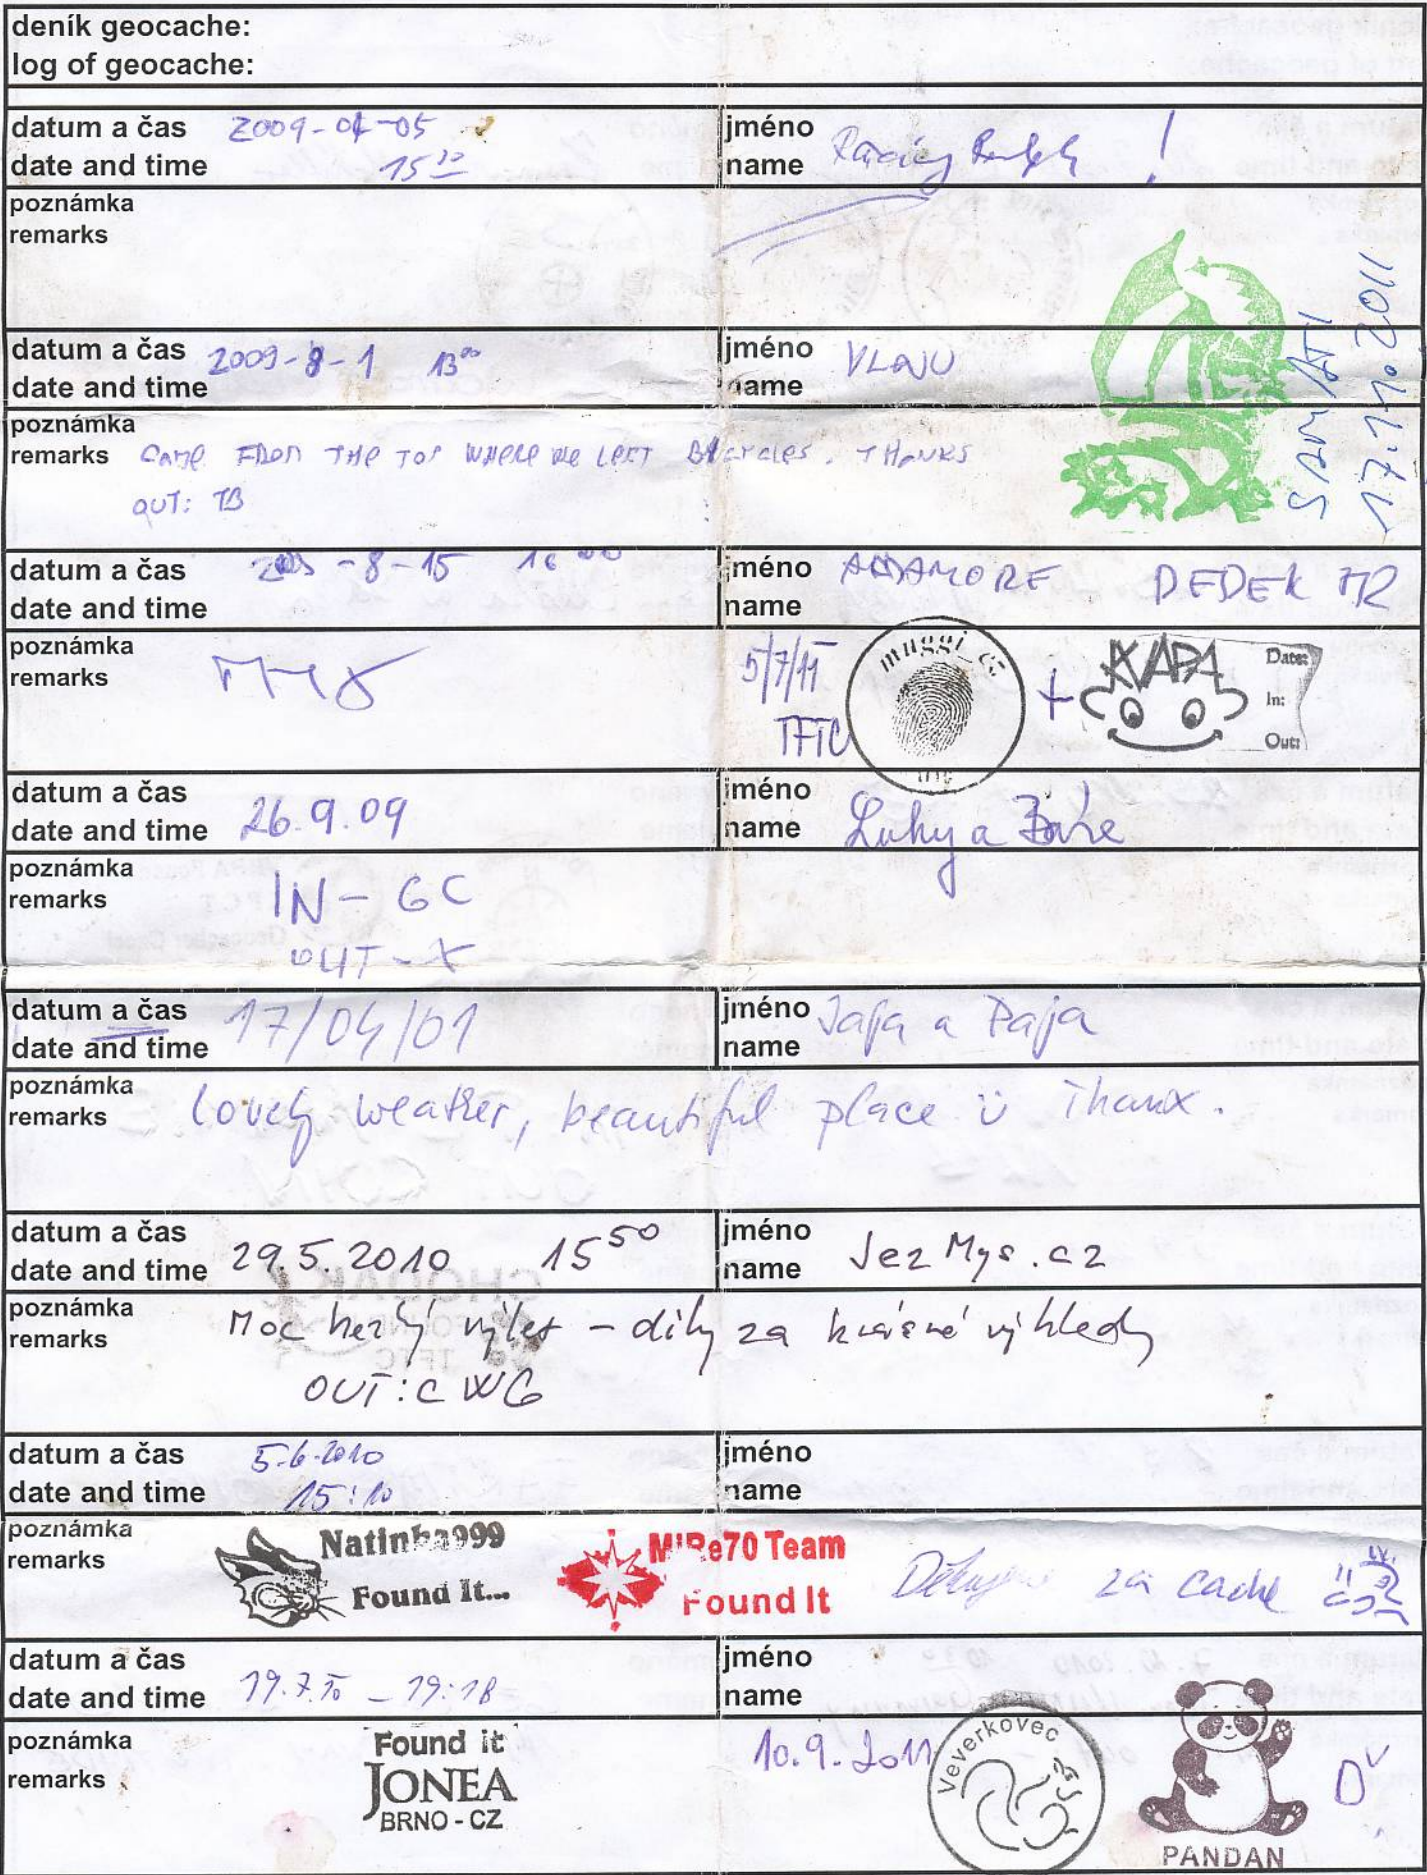 deník geocache:
log of geocache:
datum a čas 2009-04-05
date and time 15
jméno
name Racing !
poznámka
remarks
datum a čas 2009-8-1 13⁰⁰
date and time
jméno VLAJU
name
poznámka
remarks CAME FROM THE TOP WHERE WE LEFT BICYCLES. THANKS
OUT: TB
17.11.2011
datum a čas -8-15 16
date and time
jméno DEDEK
name
poznámka
remarks
5/7/11
TFTC
muggl_cz
+
KVAPA
Date:
In:
Out:
datum a čas
date and time 26.9.09
jméno
name Luky a Báře
poznámka
remarks IN - GC
OUT - X
datum a čas 17/04/01
date and time
jméno Jája a Pája
name
poznámka
remarks Lovely weather, beautiful place ü Thanx.
datum a čas
date and time 29.5.2010 15⁵⁰
jméno
name JezMys.cz
poznámka
remarks Moc hezký výlet - díky za krásné výhledy
OUT: CWG
datum a čas 5.6.2010
date and time 15:10
jméno
name
poznámka
remarks
Natinka999
Found It...
MiRe70 Team
Found It
Děkujeme za cache
datum a čas
date and time 19.7.10 - 19:18
jméno
name
poznámka
remarks
Found it
JONEA
BRNO - CZ
10.9.2011
Veverkovec
PANDAN